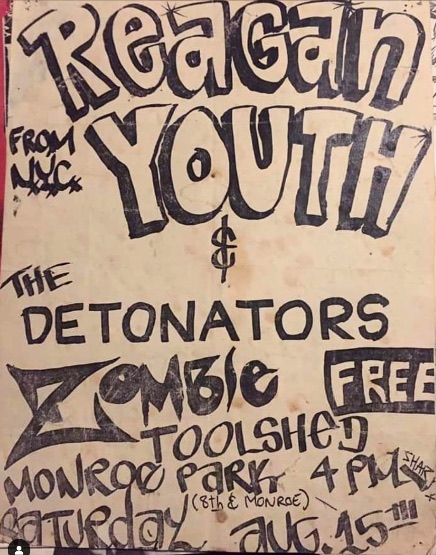 Reagan
YOUTH
FROM
N.Y.C.
&
THE
DETONATORS
ZOMBIE
FREE
TOOLSHED
MONROE PARK 4 PM SHARP
(8th & MONROE)
SATURDAY AUG. 15TH